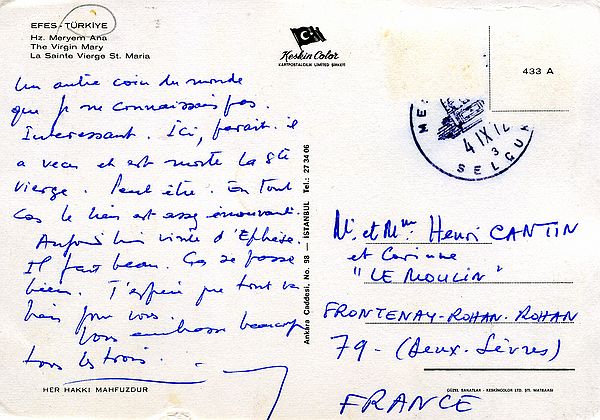 EFES - TÜRKİYE
Hz. Meryem Ana
The Virgin Mary
La Sainte Vierge St. Maria
Keskin Color
KARTPOSTALCILIK LIMITED ŞİRKETİ
433 A
Un autre coin du monde
que je ne connaissais pas.
Interessant. Ici, parait-il
a vecu et est morte la Ste
Vierge. Peut être. En tout
cas le lieu est assez émouvant.
Aujourd'hui visite d'Ephèse.
Il fait beau. Ça se passe
bien. J'espère que tout va
bien pour vous.
Vous embrasse beaucoup
tous les trois.
HER HAKKI MAHFUZDUR
Ankara Caddesi, No. 98 — İSTANBUL Tel.: 27 34 06
4 IX
3
SELÇUK
Mr et Mme Henri CANTIN
et Corinne
"LE MOULIN"
FRONTENAY-ROHAN-ROHAN
79 - (Deux-Sèvres)
FRANCE
GÜZEL SANATLAR - KESKİNCOLOR LTD. ŞTİ. MATBAASI